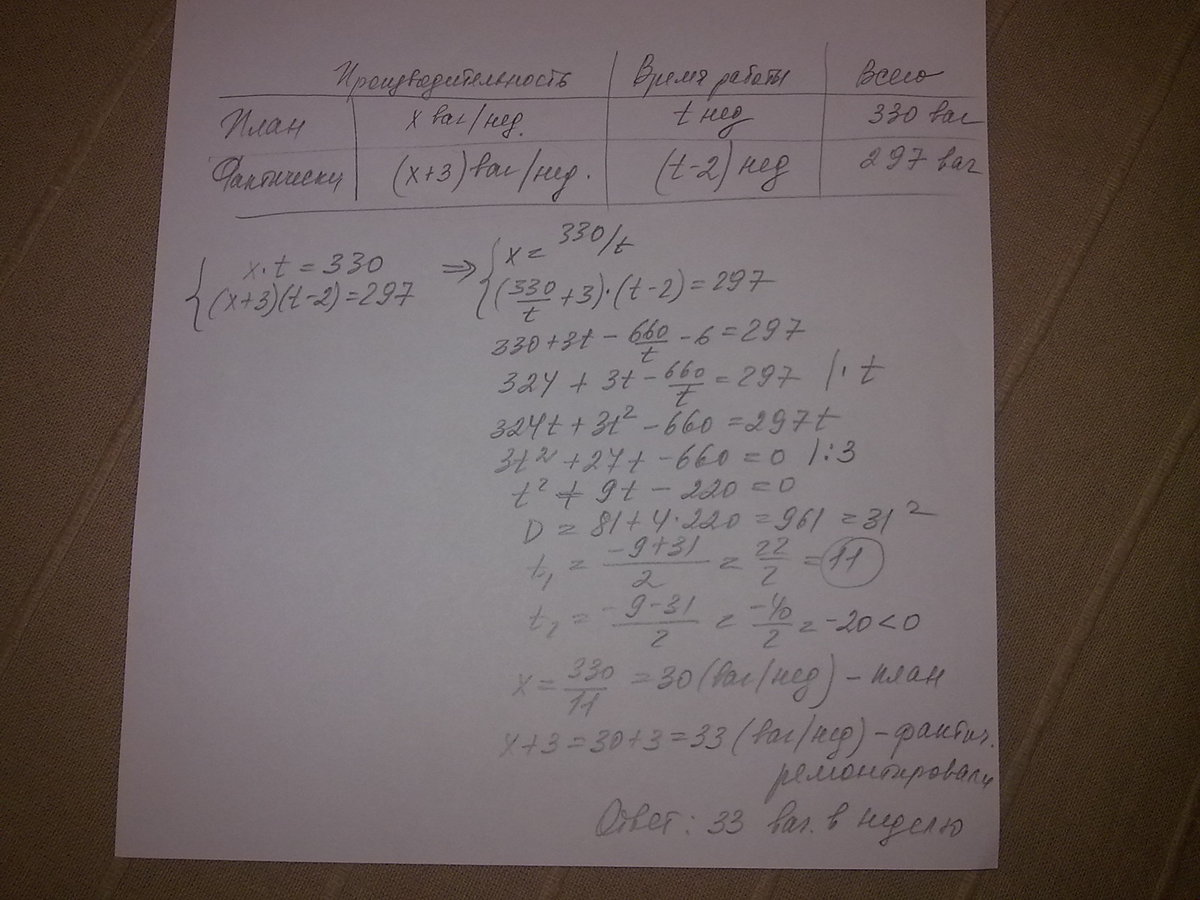 Производительность Время работы Всего
План x ваг/нед. t нед 330 ваг
Фактически (x+3) ваг/нед. (t-2) нед 297 ваг
{ x·t = 330 ⇒ { x = 330/t
(x+3)(t-2)=297 (330/t +3)·(t-2)=297
330+3t - 660/t - 6 = 297
324 + 3t - 660/t = 297 |· t
324t + 3t² - 660 = 297t
3t² + 27t - 660 = 0 |:3
t² + 9t - 220 = 0
D = 81+4·220 = 961 = 31²
t₁ = (-9+31)/2 = 22/2 = 11
t₂ = (-9-31)/2 = -40/2 = -20<0
x = 330/11 = 30 (ваг/нед) - план
x+3 = 30+3 = 33 (ваг/нед) - фактич.
ремонтировали
Ответ: 33 ваг. в неделю